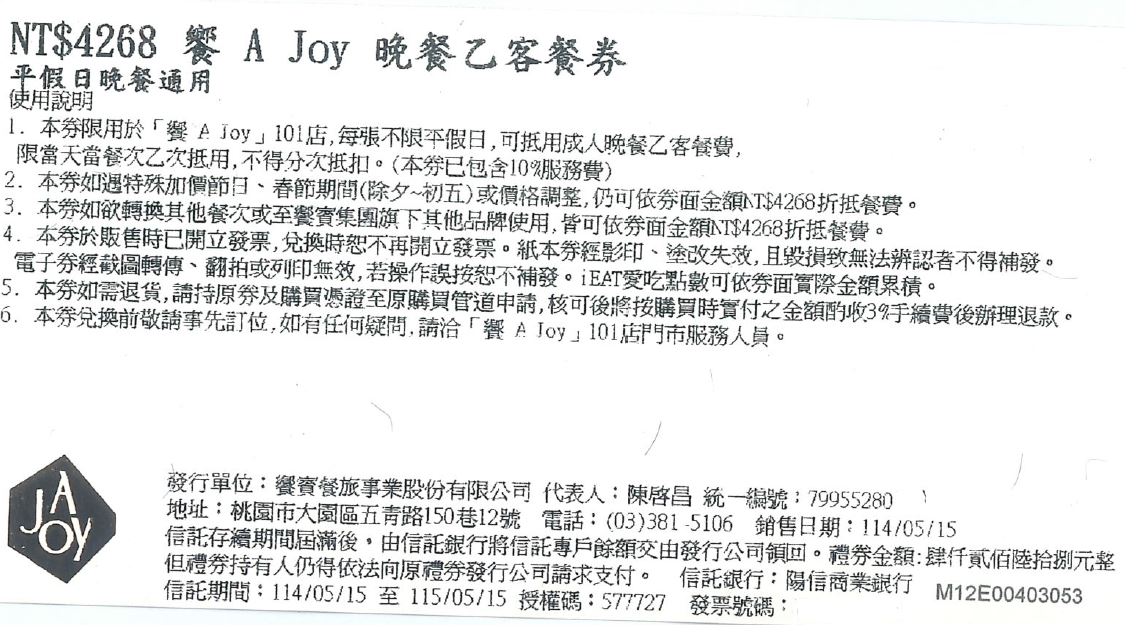 NT$4268 饗 A Joy 晚餐乙客餐券
平假日晚餐通用
使用說明
1. 本券限用於「饗 A Joy」101店,每張不限平假日,可抵用成人晚餐乙客餐費,
限當天當餐次乙次抵用,不得分次抵扣。(本券已包含10%服務費)
2. 本券如遇特殊加價節日、春節期間(除夕~初五)或價格調整,仍可依券面金額NT$4268折抵餐費。
3. 本券如欲轉換其他餐次或至饗賓集團旗下其他品牌使用,皆可依券面金額NT$4268折抵餐費。
4. 本券於販售時已開立發票,兌換時恕不再開立發票。紙本券經影印、塗改失效,且毀損致無法辨認者不得補發。
電子券經截圖轉傳、翻拍或列印無效,若操作誤按恕不補發。iEAT愛吃點數可依券面實際金額累積。
5. 本券如需退貨,請持原券及購買憑證至原購買管道申請,核可後將按購買時實付之金額酌收3%手續費後辦理退款。
6. 本券兌換前敬請事先訂位,如有任何疑問,請洽「饗 A Joy」101店門市服務人員。
A
JOY
發行單位：饗賓餐旅事業股份有限公司 代表人：陳啓昌 統一編號：79955280
地址：桃園市大園區五青路150巷12號 電話：(03)381-5106 銷售日期：114/05/15
信託存續期間屆滿後，由信託銀行將信託專戶餘額交由發行公司領回。禮券金額:肆仟貳佰陸拾捌元整
但禮券持有人仍得依法向原禮券發行公司請求支付。 信託銀行：陽信商業銀行 M12E00403053
信託期間：114/05/15 至 115/05/15 授權碼：577727 發票號碼：